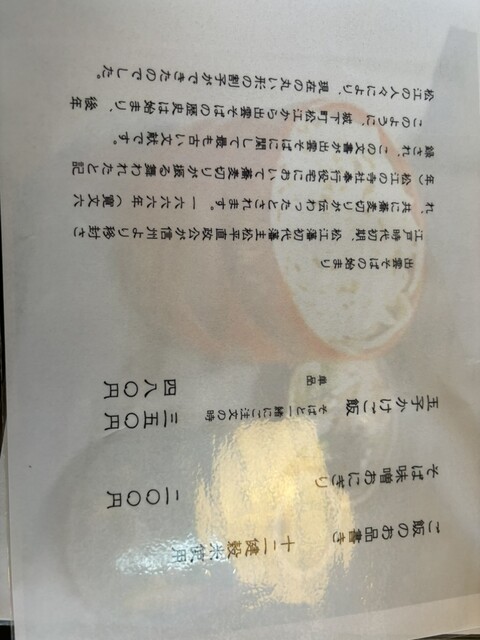 ご飯のお品書き
十二健穀米使用
そば味噌おにぎり 二〇〇円
玉子かけご飯 そばと一緒にご注文の時 三五〇円
単品 四八〇円
出雲そばの始まり
江戸時代初期、松江藩初代藩主松平直政公が信州より移封さ
れ、共に蕎麦切りが伝わったとされます。一六六六年(寛文六
年)松江の寺社奉行役宅において蕎麦切りが振る舞われたと記
録され、この文書が出雲そばに関して最も古い文献です。
このように、城下町松江から出雲そばの歴史は始まり、後年
松江の人々により、現在の丸い形の割子ができたのでした。